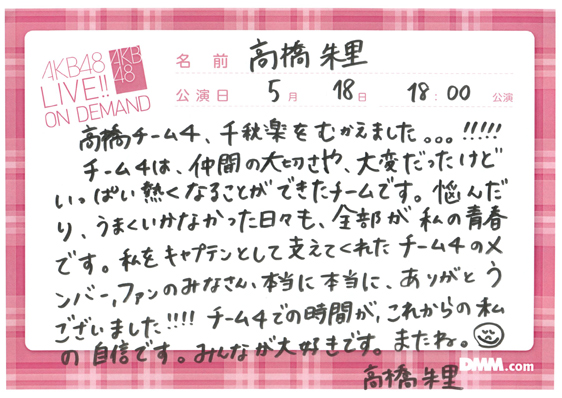 AKB48
LIVE!!
ON DEMAND
AKB
48
名前 高橋朱里
公演日 5月 18日 18:00 公演
高橋チーム4、千秋楽をむかえました。。。!!!!!
チーム4は、仲間の大切さや、大変だったけど
いっぱい熱くなることができたチームです。悩んだ
り、うまくいかなかった日々も、全部が私の青春
です。私をキャプテンとして支えてくれたチーム4のメ
ンバー、ファンのみなさん、本当に本当に、ありがとう
ございました!!!! チーム4での時間が、これからの私
の自信です。みんなが大好きです。またね。
DMM.com
高橋朱里